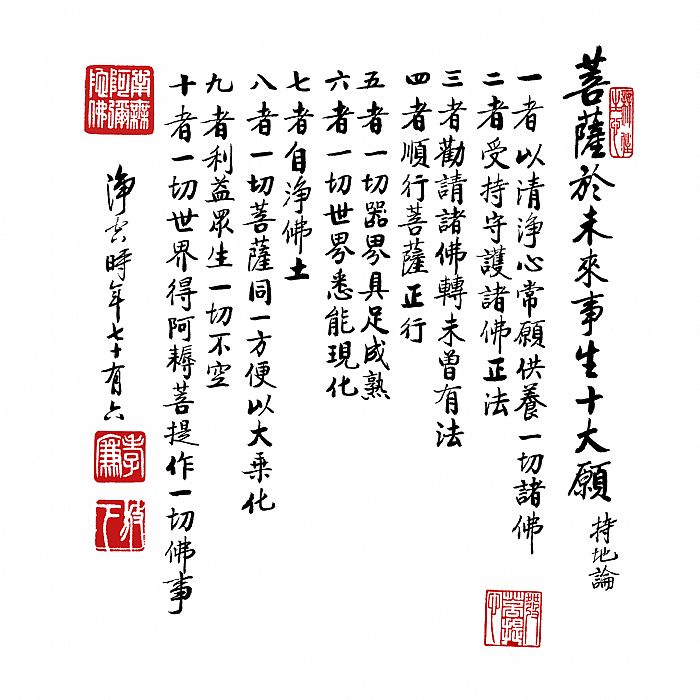 菩薩於未來事生十大願 持地論
一者以清淨心常願供養一切諸佛
二者受持守護諸佛正法
三者勸請諸佛轉未曾有法
四者順行菩薩正行
五者一切器界具足成熟
六者一切世界悉能現化
七者自淨佛土
八者一切菩薩同一方便以大乘化
九者利益眾生一切不空
十者一切世界得阿耨菩提作一切佛事
淨空時年七十有六
南無阿彌陀佛
發菩提心